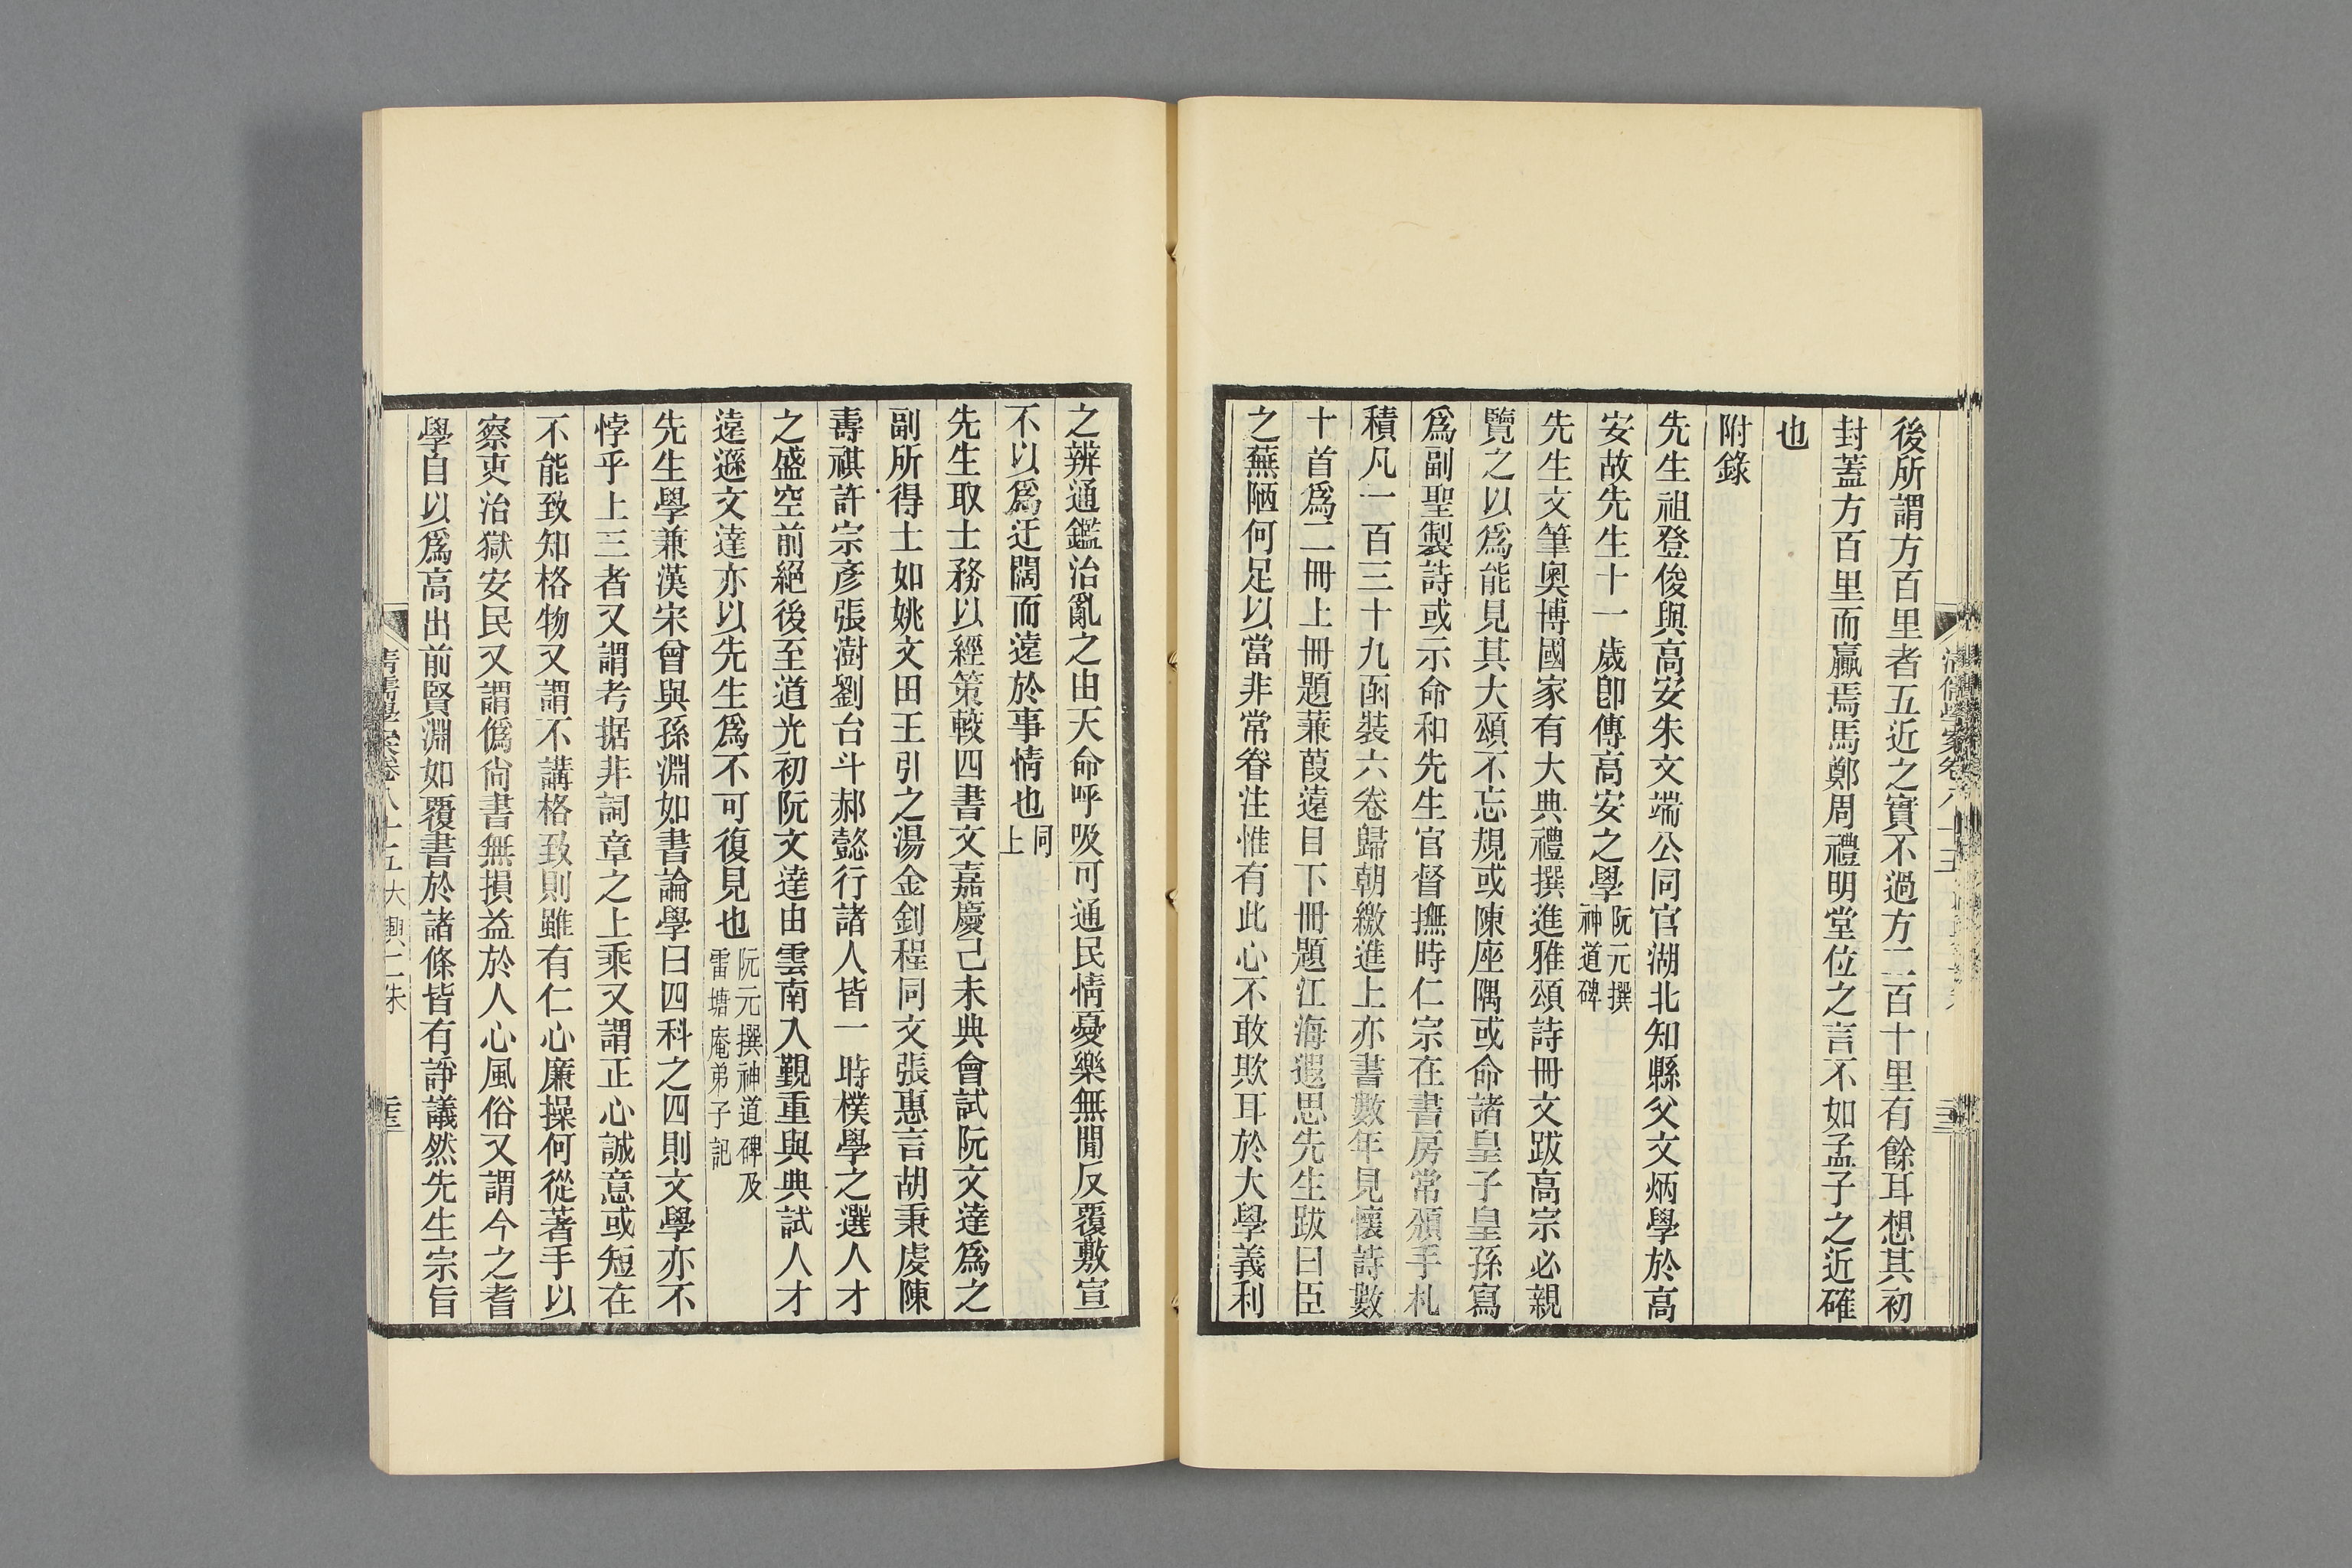 後所謂方百里者五近之實不過方二百十里有餘耳想其初
封蓋方百里而贏焉馬鄭周禮明堂位之言不如孟子之近確
也
附錄
先生祖登俊與高安朱文端公同官湖北知縣父文炳學於高
安故先生十一歲卽傳高安之學阮元撰神道碑
先生文筆奧博國家有大典禮撰進雅頌詩冊文跋高宗必親
覽之以爲能見其大頌不忘規或陳座隅或命諸皇子皇孫寫
爲副聖製詩或示命和先生官督撫時仁宗在書房常頒手札
積凡一百三十九函裝六卷歸朝繳進上亦書數年見懷詩數
十首爲二冊上冊題蒹葭遠目下冊題江海遐思先生跋曰臣
之蕪陋何足以當非常眷注惟有此心不敢欺耳於大學義利
之辨通鑑治亂之由天命呼吸可通民情憂樂無閒反覆敷宣
不以爲迂闊而遠於事情也同上
先生取士務以經策較四書文嘉慶己未典會試阮文達爲之
副所得士如姚文田王引之湯金釗程同文張惠言胡秉虔陳
壽祺許宗彥張澍劉台斗郝懿行諸人皆一時樸學之選人才
之盛空前絕後至道光初阮文達由雲南入覲重與典試人才
遠遜文達亦以先生爲不可復見也阮元撰神道碑及雷塘庵弟子記
先生學兼漢宋曾與孫淵如書論學曰四科之四則文學亦不
悖乎上三者又謂考据非詞章之上乘又謂正心誠意或短在
不能致知格物又謂不講格致則雖有仁心廉操何從著手以
察吏治獄安民又謂僞尙書無損益於人心風俗又謂今之耆
學自以爲高出前賢淵如覆書於諸條皆有諍議然先生宗旨
清儒學案卷八十五 大興二朱